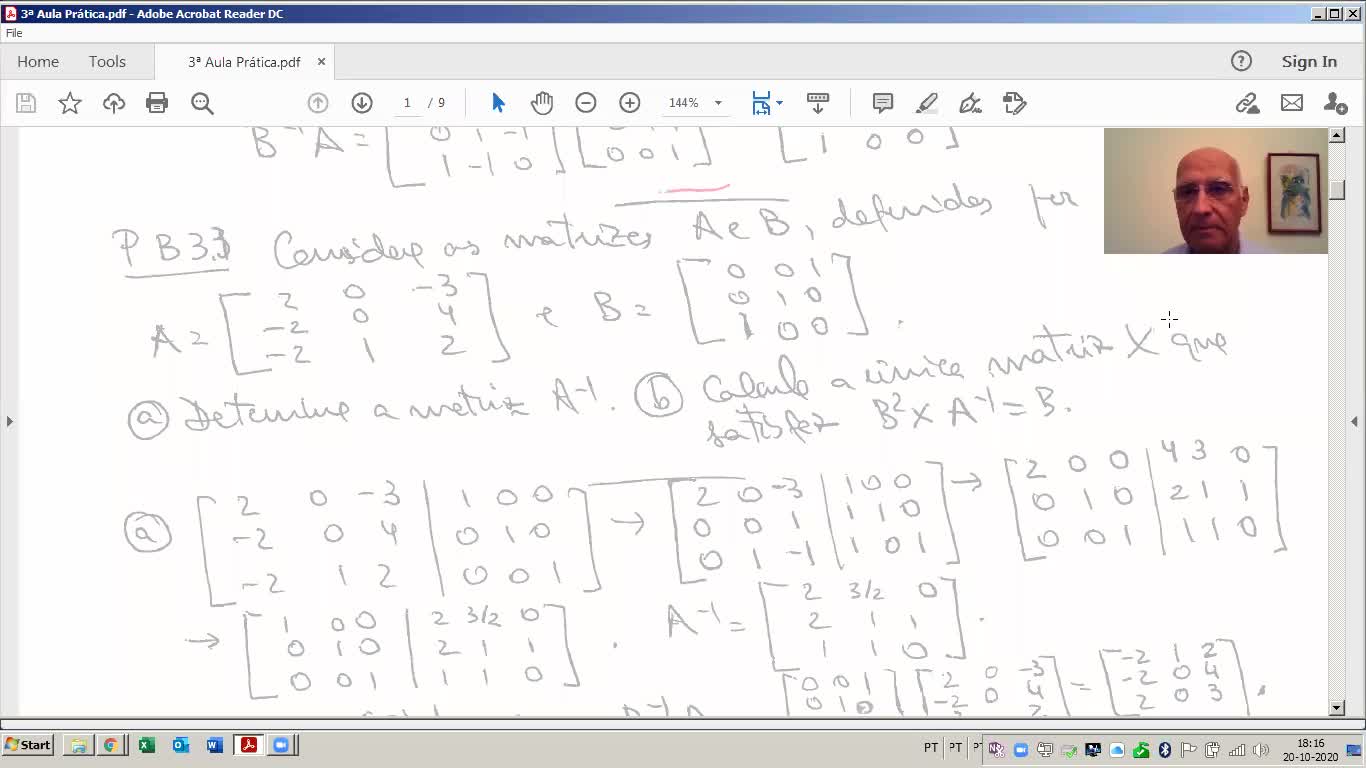 3ª Aula Prática.pdf - Adobe Acrobat Reader DC
File
Home Tools 3ª Aula Prática.pdf × Sign In
1 / 9 144%
B⁻¹ A = [ 0 1 -1
1 -1 0 ] [ 0 0 1 ] [ 1 0 0 ]
P B3.3 Considere as matrizes A e B, definidas por
A = [ 2 0 -3
-2 0 4
-2 1 2 ] e B = [ 0 0 1
0 1 0
1 0 0 ].
(a) Determine a matriz A⁻¹. (b) Calcule a única matriz X que
satisfaz B² X A⁻¹ = B.
(a) [ 2 0 -3 | 1 0 0
-2 0 4 | 0 1 0
-2 1 2 | 0 0 1 ] → [ 2 0 -3 | 1 0 0
0 0 1 | 1 1 0
0 1 -1 | 1 0 1 ] → [ 2 0 0 | 4 3 0
0 1 0 | 2 1 1
0 0 1 | 1 1 0 ]
→ [ 1 0 0 | 2 3/2 0
0 1 0 | 2 1 1
0 0 1 | 1 1 0 ]. A⁻¹ = [ 2 3/2 0
2 1 1
1 1 0 ].
[ 0 0 1
0 1 0 [ 2 0 -3
-2 0 4 = [ -2 1 2
-2 0 4
2 0 3 ].
Start PT PT 18:16
20-10-2020